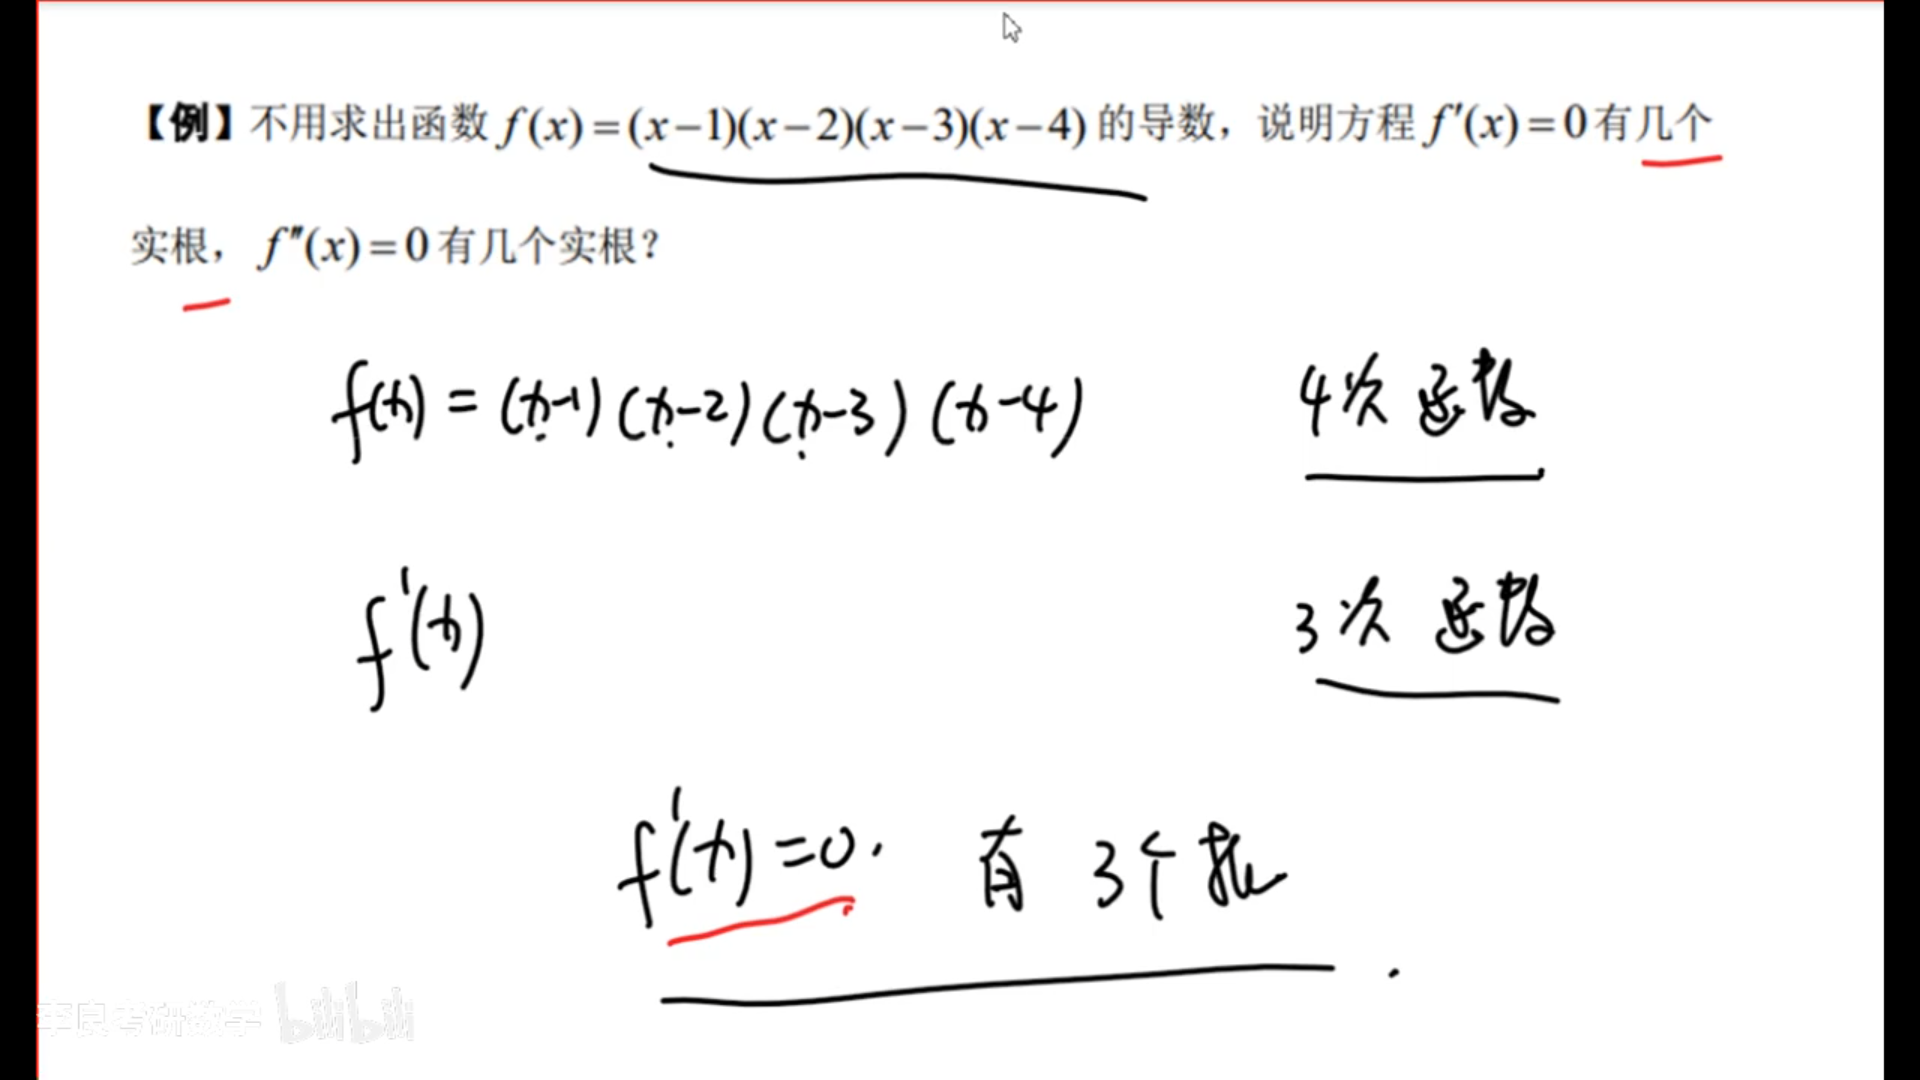 【例】不用求出函数 f(x)=(x−1)(x−2)(x−3)(x−4) 的导数，说明方程 f′(x)=0 有几个
实根， f″(x)=0 有几个实根？
f(x) = (x-1)(x-2)(x-3)(x-4) 4次函数
f'(x) 3次函数
f'(x)=0. 有 3个根
李良考研数学 bilibili